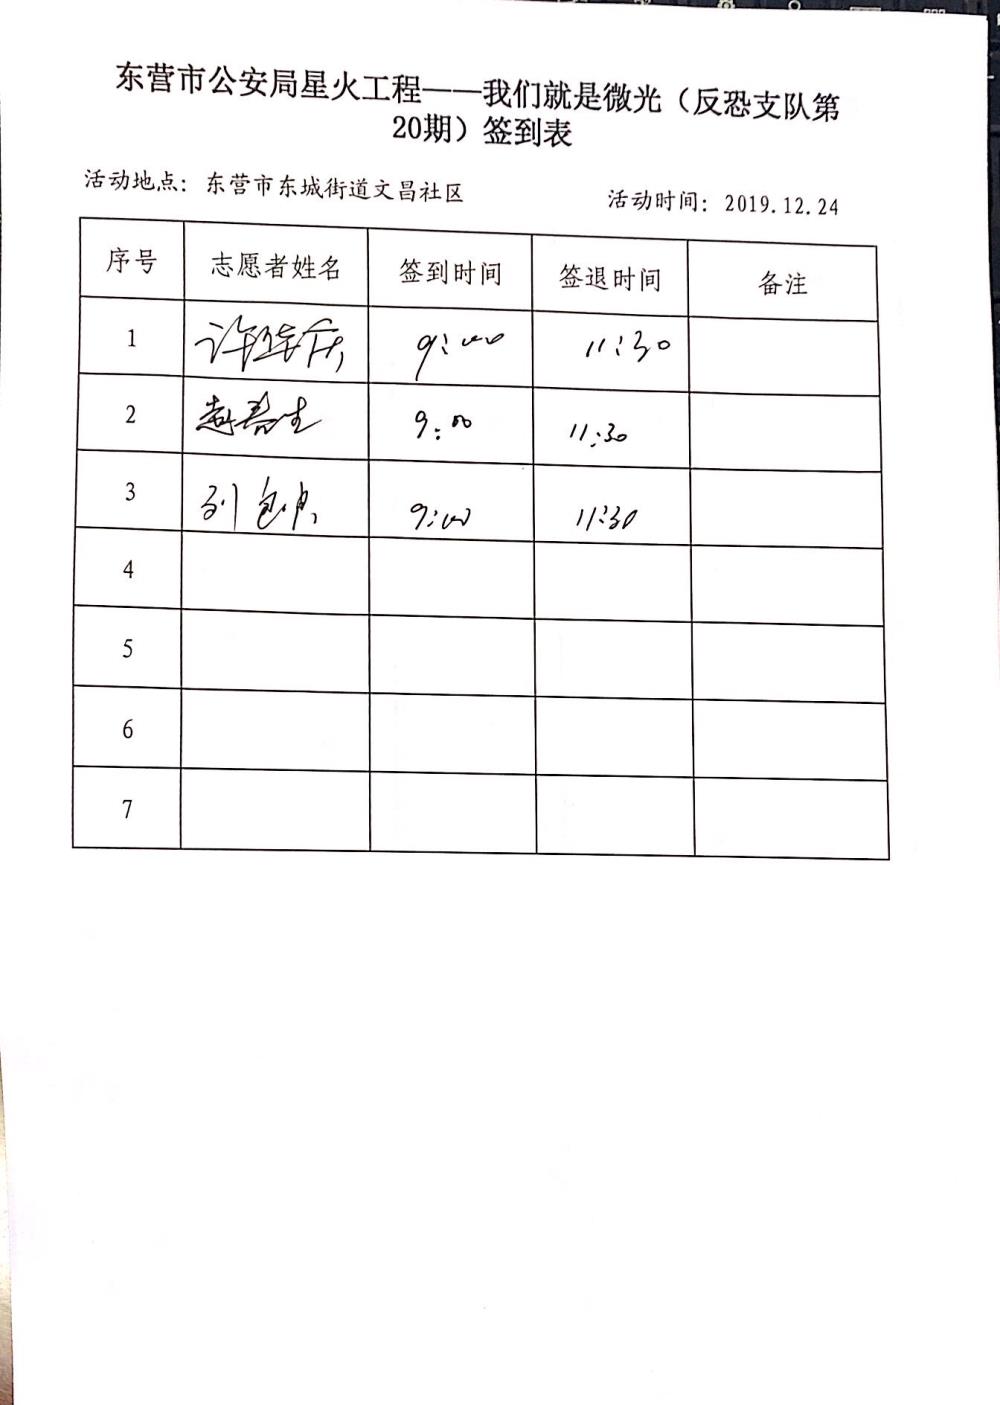 东营市公安局星火工程——我们就是微光（反恐支队第
20期）签到表
活动地点：东营市东城街道文昌社区 活动时间：2019.12.24
序号 志愿者姓名 签到时间 签退时间 备注
1 许 9:00 11:30
2 赵 生 9:00 11:30
3 刘 9:00 11:30
4
5
6
7